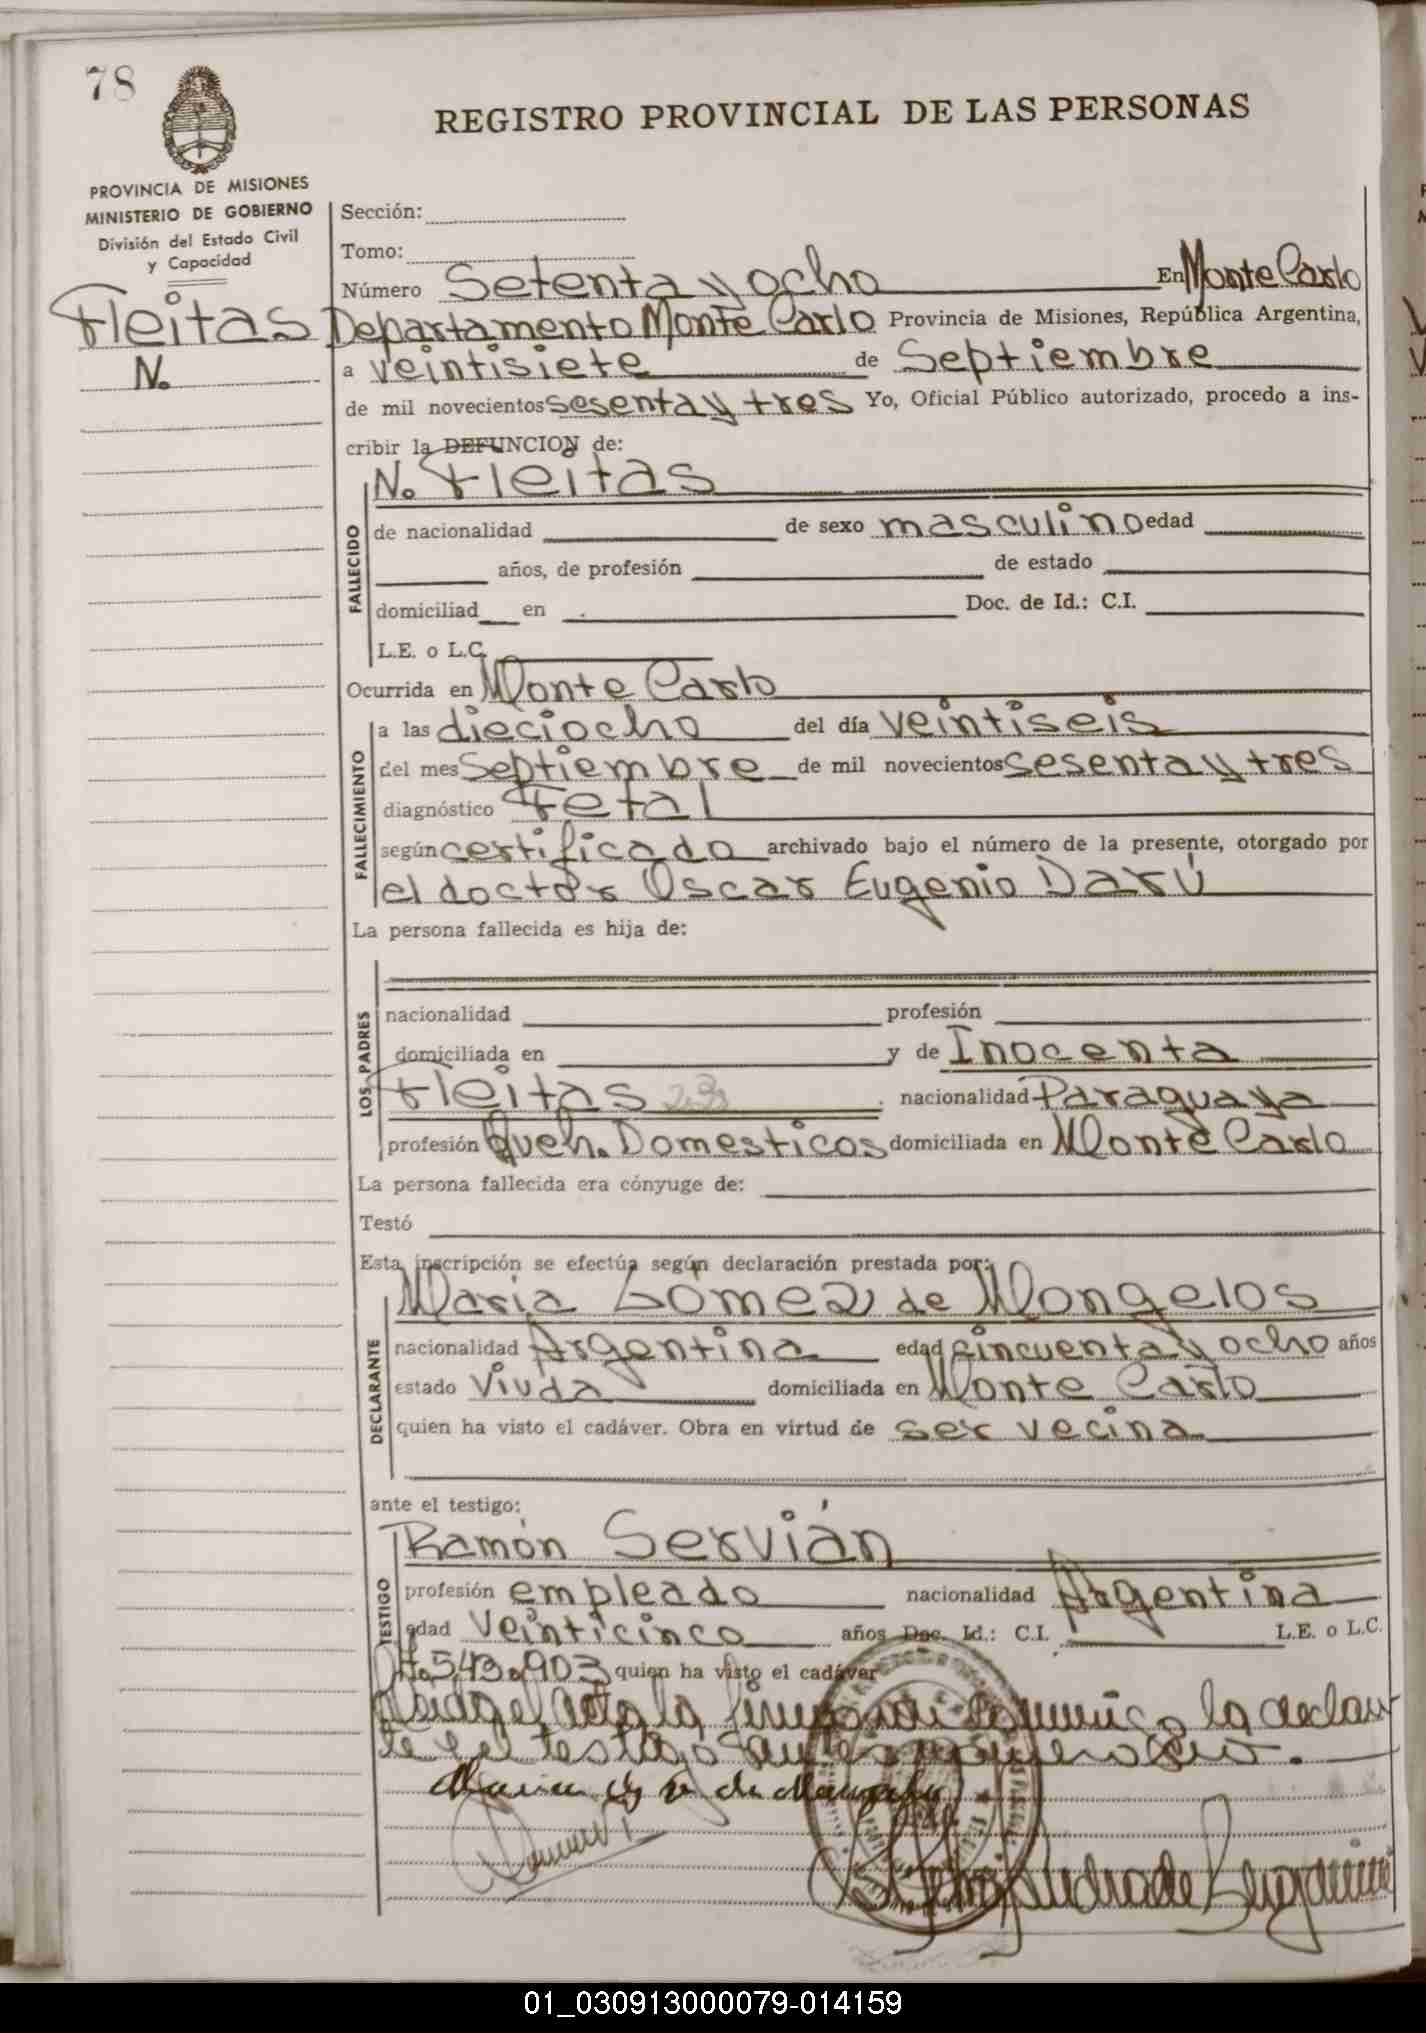 78
REGISTRO PROVINCIAL DE LAS PERSONAS
PROVINCIA DE MISIONES
MINISTERIO DE GOBIERNO
División del Estado Civil
y Capacidad
Fleitas
N.
Sección:
Tomo:
Número Setenta y ocho En Monte Carlo
Departamento Monte Carlo Provincia de Misiones, República Argentina,
a veintisiete de Septiembre
de mil novecientos sesenta y tres Yo, Oficial Público autorizado, procedo a ins-
cribir la DEFUNCION de:
N. Fleitas
FALLECIDO
de nacionalidad de sexo masculino edad
años, de profesión de estado
domiciliad en Doc. de Id.: C.I.
L.E. o L.C.
Ocurrida en Monte Carlo
FALLECIMIENTO
a las dieciocho del día veintiseis
del mes Septiembre de mil novecientos sesenta y tres
diagnóstico Fetal
según certificado archivado bajo el número de la presente, otorgado por
el doctor Oscar Eugenio Darú
La persona fallecida es hija de:
LOS PADRES
nacionalidad profesión
domiciliada en y de Inocenta
Fleitas 23 nacionalidad Paraguaya
profesión Queh. Domesticos domiciliada en Monte Carlo
La persona fallecida era cónyuge de:
Testó
Esta inscripción se efectúa según declaración prestada por:
Maria Gómez de Mongelos
DECLARANTE
nacionalidad Argentina edad cincuenta y ocho años
estado Viuda domiciliada en Monte Carlo
quien ha visto el cadáver. Obra en virtud de ser vecina
ante el testigo:
Ramón Servián
TESTIGO
profesión empleado nacionalidad Argentina
edad Veinticinco años Doc. Id.: C.I. L.E. o L.C.
543.903 quien ha visto el cadáver
el acta la conmigo la declaran
te y el testigo
Maria G. de
01_030913000079-014159